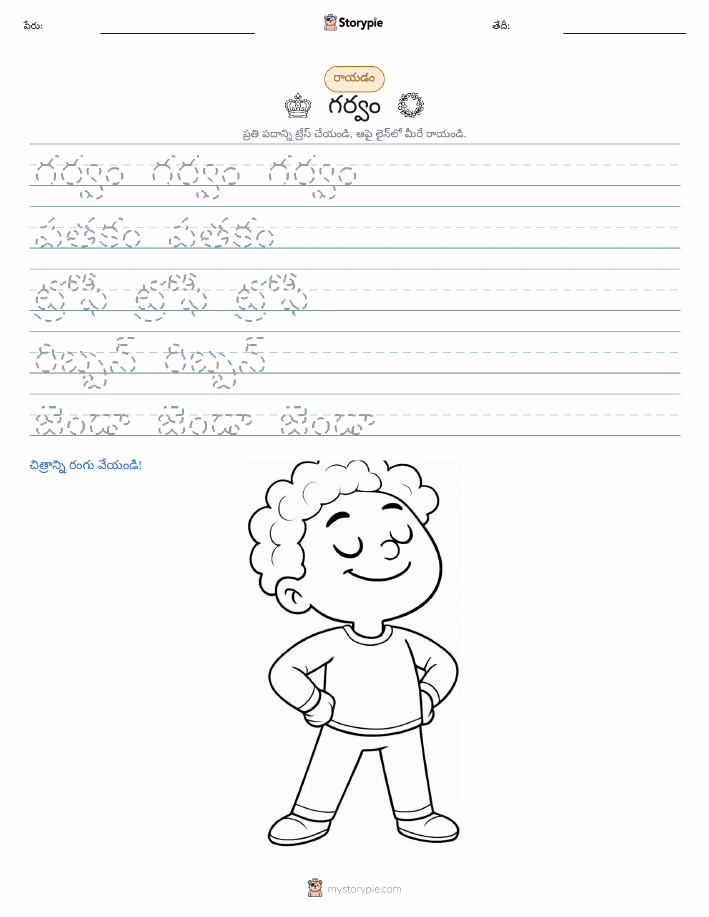 పేరు:
Storypie
తేదీ:
రాయడం
గర్వం
ప్రతి పదాన్ని ట్రేస్ చేయండి, ఆపై లైన్‌లో మీరే రాయండి.
గర్వం గర్వం గర్వం
పతకం పతకం
ట్రోఫీ ట్రోఫీ ట్రోఫీ
రిబ్బన్ రిబ్బన్
జెండా జెండా జెండా
చిత్రాన్ని రంగు వేయండి!
mystorypie.com